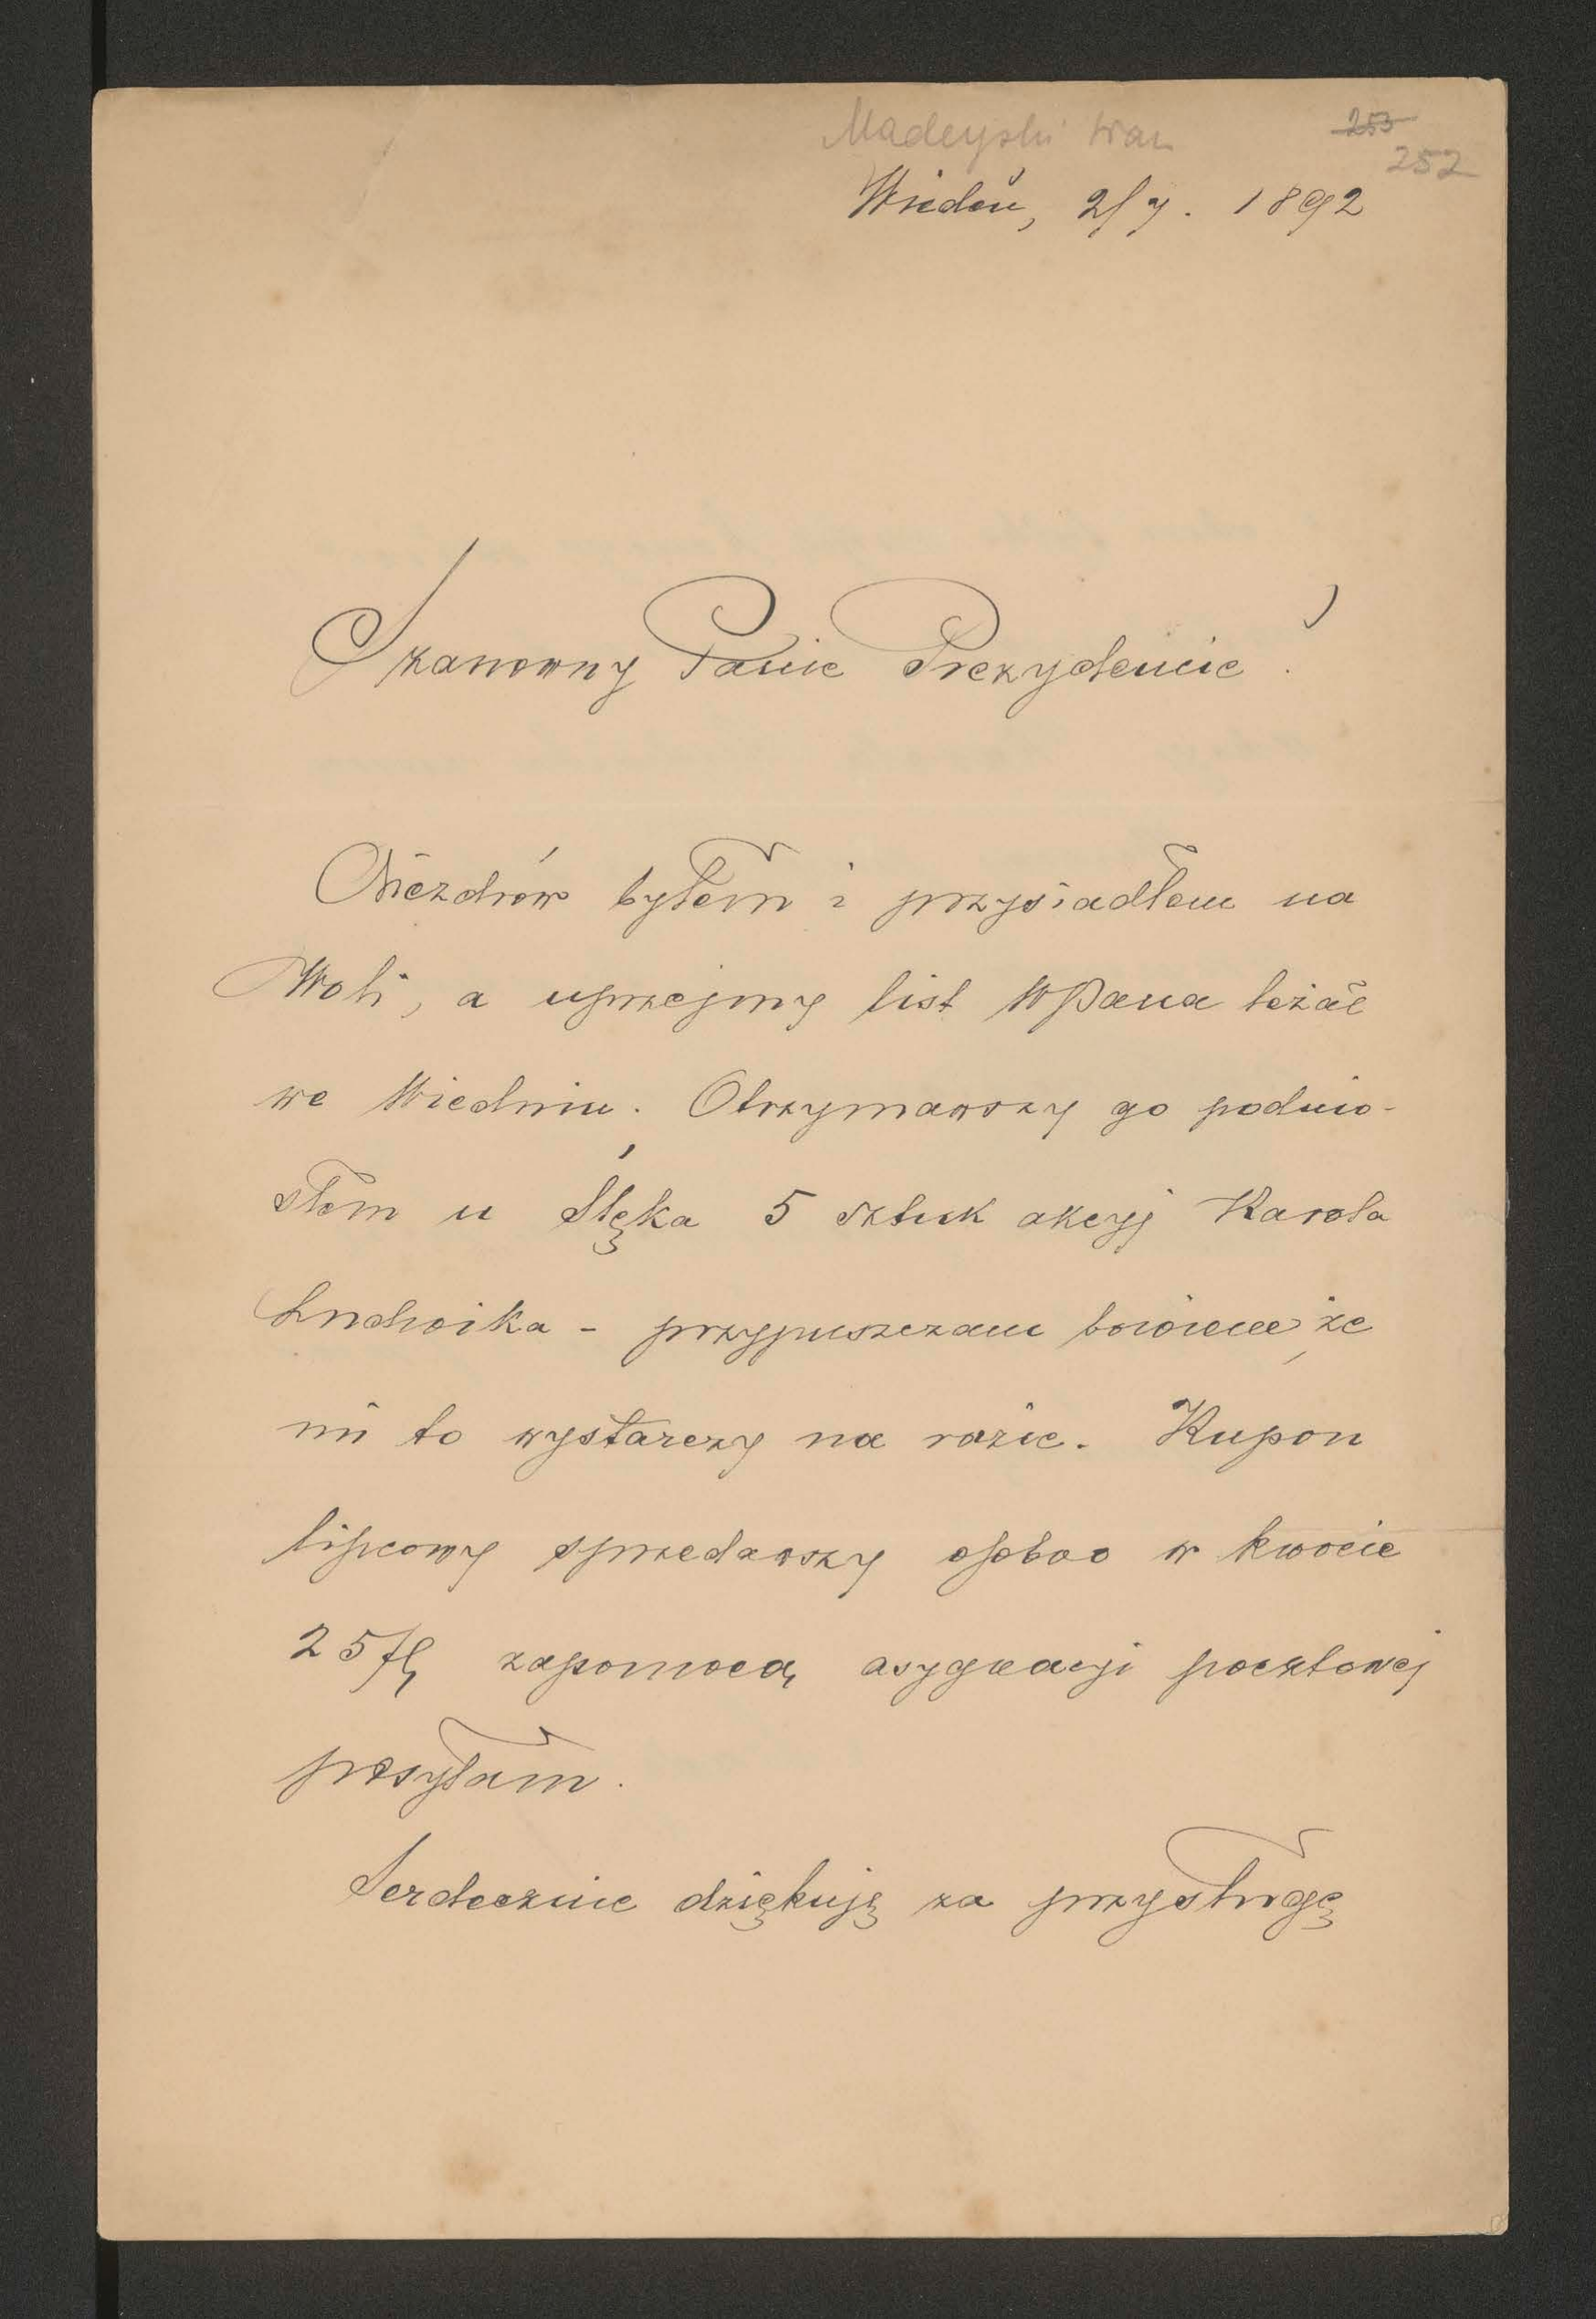 Madeyski
253
252
Wiedeń, 2/7. 1892
Szanowny Panie Prezydencie!
Niezdrów byłem i przysiadłem na
Woli, a uprzejmy list WPana leżał
we Wiedniu. Otrzymawszy go podnio-
słem u Slęka 5 sztuk akcyj Karola
Ludwika - przypuszczam bowiem, że
mi to wystarczy na razie. Kupon
lipcowy sprzedawszy osobno w kwocie
25 fl zapomocą asygnacyi pocztowej
posyłam.
Serdecznie dziękuję za przysługę